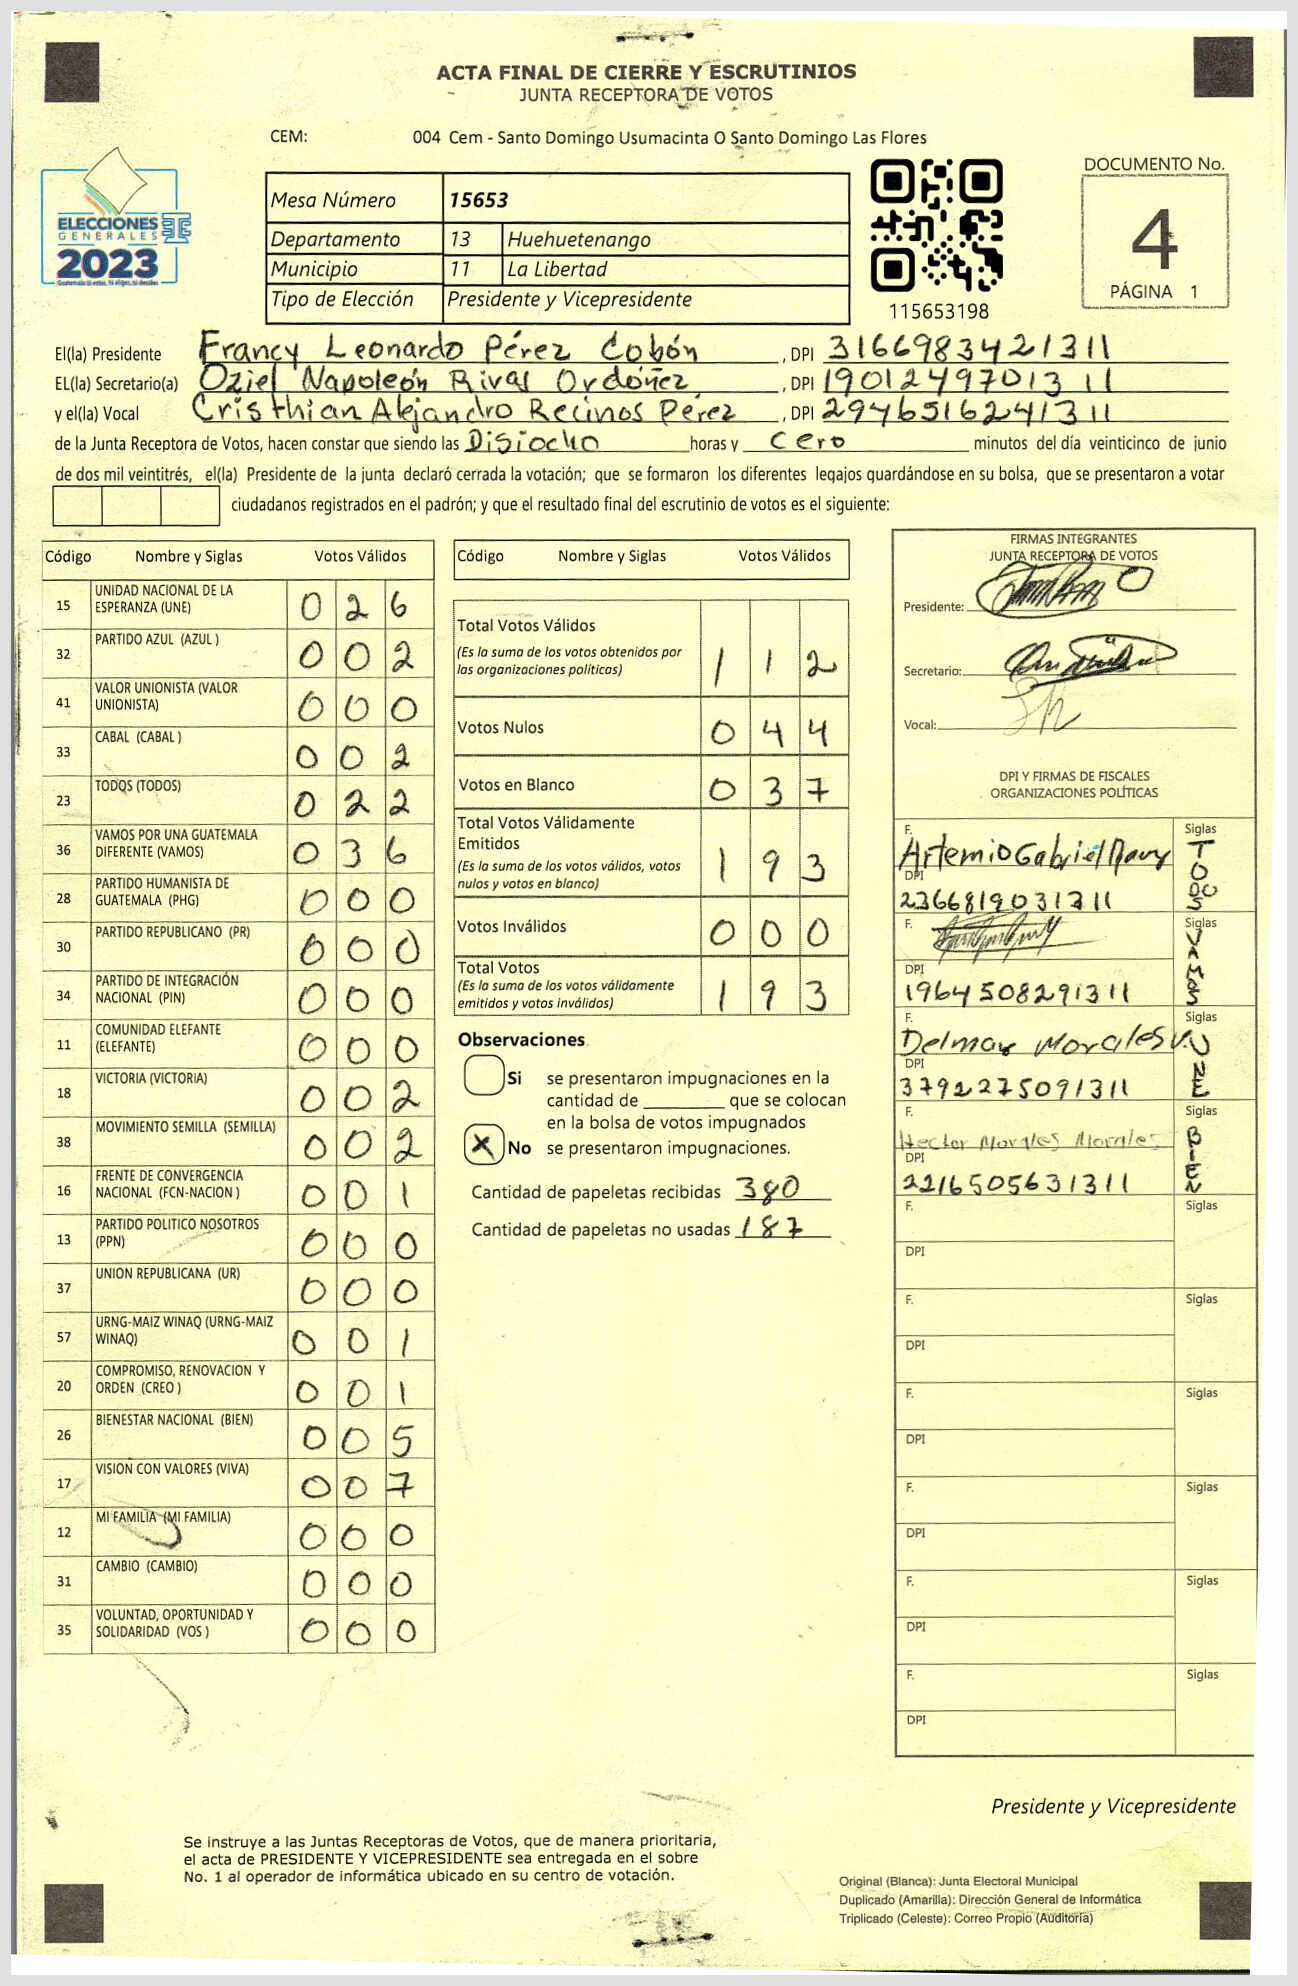 ACTA FINAL DE CIERRE Y ESCRUTINIOS
JUNTA RECEPTORA DE VOTOS
CEM: 004 Cem - Santo Domingo Usumacinta O Santo Domingo Las Flores
ELECCIONES
GENERALES
2023
Mesa Número 15653
Departamento 13 Huehuetenango
Municipio 11 La Libertad
Tipo de Elección Presidente y Vicepresidente
115653198
DOCUMENTO No.
4
PÁGINA 1
El(la) Presidente Francy Leonardo Pérez Cobón, DPI 3166983421311
EL(la) Secretario(a) Oziel Napoleón Rivas Ordóñez, DPI 1901249701311
y el(la) Vocal Cristhian Alejandro Recinos Pérez, DPI 2946516241311
de la Junta Receptora de Votos, hacen constar que siendo las Disiocho horas y cero minutos del día veinticinco de junio
de dos mil veintitrés, el(la) Presidente de la junta declaró cerrada la votación; que se formaron los diferentes legajos guardándose en su bolsa, que se presentaron a votar
ciudadanos registrados en el padrón; y que el resultado final del escrutinio de votos es el siguiente:
Código Nombre y Siglas Votos Válidos
15 UNIDAD NACIONAL DE LA ESPERANZA (UNE) 026
32 PARTIDO AZUL (AZUL ) 002
41 VALOR UNIONISTA (VALOR UNIONISTA) 000
33 CABAL (CABAL ) 002
23 TODOS (TODOS) 022
36 VAMOS POR UNA GUATEMALA DIFERENTE (VAMOS) 036
28 PARTIDO HUMANISTA DE GUATEMALA (PHG) 000
30 PARTIDO REPUBLICANO (PR) 000
34 PARTIDO DE INTEGRACIÓN NACIONAL (PIN) 000
11 COMUNIDAD ELEFANTE (ELEFANTE) 000
18 VICTORIA (VICTORIA) 002
38 MOVIMIENTO SEMILLA (SEMILLA) 002
16 FRENTE DE CONVERGENCIA NACIONAL (FCN-NACION ) 001
13 PARTIDO POLITICO NOSOTROS (PPN) 000
37 UNION REPUBLICANA (UR) 000
57 URNG-MAIZ WINAQ (URNG-MAIZ WINAQ) 001
20 COMPROMISO, RENOVACION Y ORDEN (CREO ) 001
26 BIENESTAR NACIONAL (BIEN) 005
17 VISION CON VALORES (VIVA) 007
12 MI FAMILIA (MI FAMILIA) 000
31 CAMBIO (CAMBIO) 000
35 VOLUNTAD, OPORTUNIDAD Y SOLIDARIDAD (VOS ) 000
Código Nombre y Siglas Votos Válidos
Total Votos Válidos 112
(Es la suma de los votos obtenidos por
las organizaciones políticas)
Votos Nulos 044
Votos en Blanco 037
Total Votos Válidamente
Emitidos 193
(Es la suma de los votos válidos, votos
nulos y votos en blanco)
Votos Inválidos 000
Total Votos 193
(Es la suma de los votos válidamente
emitidos y votos inválidos)
Observaciones
Si se presentaron impugnaciones en la
cantidad de ________ que se colocan
en la bolsa de votos impugnados
X No se presentaron impugnaciones.
Cantidad de papeletas recibidas 380
Cantidad de papeletas no usadas 187
FIRMAS INTEGRANTES
JUNTA RECEPTORA DE VOTOS
Presidente:
Secretario:
Vocal:
DPI Y FIRMAS DE FISCALES
ORGANIZACIONES POLÍTICAS
F. Artemio Gabriel Siglas TODOS
DPI 2366819031311
F. Siglas VAMOS
DPI 1964508291311
F. Delmar Morales V. Siglas UNE
DPI 3792275091311
F. Hector Morales Morales Siglas BIEN
DPI 2216505631311
F. Siglas
DPI
F. Siglas
DPI
F. Siglas
DPI
F. Siglas
DPI
F. Siglas
DPI
F. Siglas
DPI
Presidente y Vicepresidente
Se instruye a las Juntas Receptoras de Votos, que de manera prioritaria,
el acta de PRESIDENTE Y VICEPRESIDENTE sea entregada en el sobre
No. 1 al operador de informática ubicado en su centro de votación.
Original (Blanca): Junta Electoral Municipal
Duplicado (Amarilla): Dirección General de Informática
Triplicado (Celeste): Correo Propio (Auditoría)